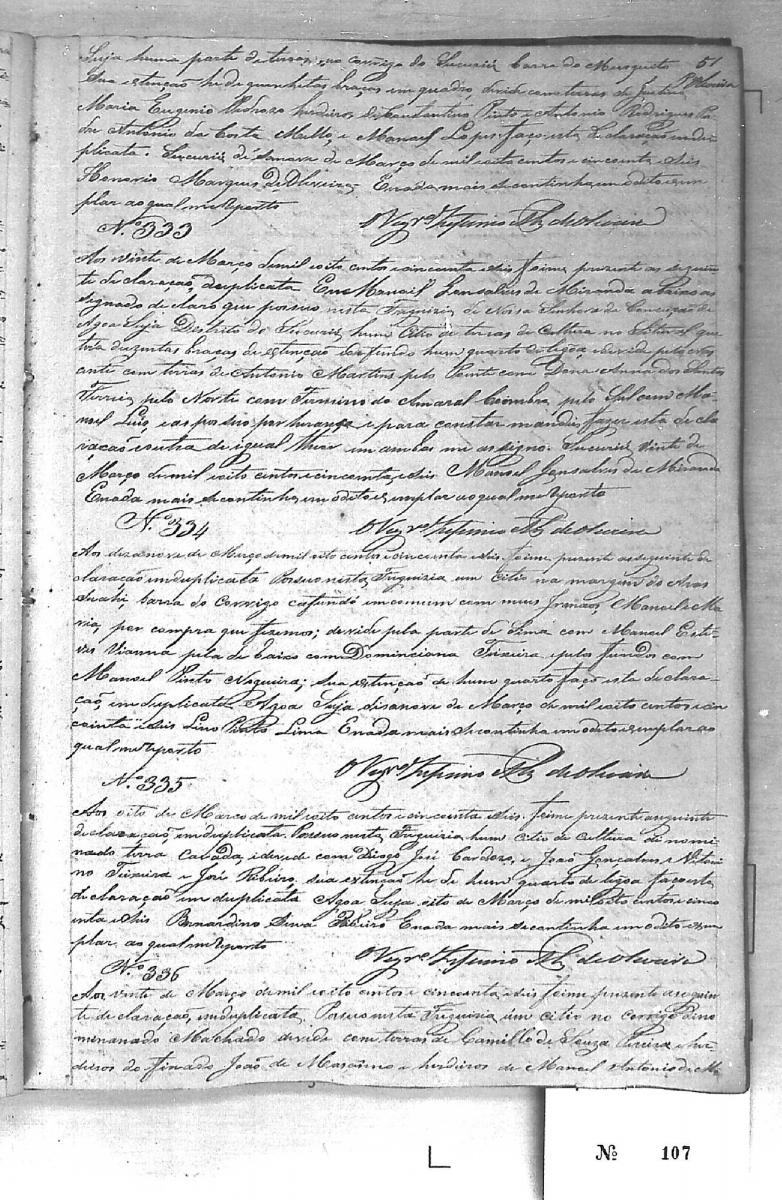 Suja huma parte de terras no corrigo do Sucuriú barra do Mosquito 51
Sua extenção he de quinhentas braças em quadro devide com terras de
Maria Eugenio Pedrozo herdeiros de Constantino Pinto e Antonio Rodrigues
Antonio da Costa Mello, e Manoel Lopes faço esta declaração em du
plicata. Sucuriú de Março de mil oito centos e cincoenta e seis
Honorio Marques de Oliveira. E nada mais se continha em o dito exem
plar ao qual me reporto
O Vigr.º de Oliveira
N.º 333
Aos vinte de Março de mil oito centos e cincoenta e seis foime presente as seguin
te declaração, duplicata. Eu Manoel Gonsalves de Miranda abaixo as
signado declaro que possuo nesta Freguizia de Nossa Senhora da Conceição de
Agoa Suja Destrito do Sucuriú, hum citio de terras de Cultura no
duzentas bracas de extenção de fundo hum quarto de legoa e devide pelo
ante com terras de Antonio Martins pelo Poente com Dona Anna dos Santos
pelo Norte com Firmino do Amaral Coimbra, pelo Sul com Ma
noel Luis, e as possuo por herança, e para constar mandei fazer esta decla
ração e outra de igual theor em ambas me assigno. Sucuriú vinte de
Março de mil oito centos e cincoenta, e seis Manoel Gonsalves de Miranda
E nada mais se continha, em o dito exemplar ao qual me reporto
N.º 334
O Vigr.º de Oliveira
Aos desanove de Março de mil oito centos e cincoenta e seis foime presente as seguinte de
claração em duplicata Possuo nesta Freguizia um Citio na margem do Aras
suahi, barra do Corrigo cafundó em comum com meus Irmaos, Manoel e Ma
ria, por compra que fizemos; devide pela parte de Sima com Manoel Este
ves Vianna pela de baixo com Dominciana Teixeira, e pelos fundos com
Manoel Pinto Nogueira; sua extenção de hum quarto faço esta declara
ção, em duplicata. Agoa Suja desanove de Março de mil oito centos e cin
coenta e seis Lino Pinto Lima E nada mais se continha em o dito exemplar ao
qual me reporto
O Vigr.º de Oliveira
N.º 335
Aos oito de Março de mil oito centos e cincoenta e seis. foime presente a seguinte
declaração, em duplicata. Possuo nesta, Freguizia hum citio de Cultura de nomi
nado terra Cavada, e devide com Diogo José Cardozo, e João Gonçalves, e
no Teixeira e José Ribeiro, sua extenção he de hum quarto de legoa faço esta
declaração em duplicata Agoa Suja oito de Março de mil oito centos e cinco
enta e seis Bernardino Ribeiro E nada mais se continha em o dito exem
plar ao qual me reporto
O Vigr.º de Oliveira
N.º 336
Aos vinte de Março de mil oito centos e cincoenta, e seis foime presente a seguin
te declaração, em duplicata. Possuo nesta Freguizia, um citio no Corrigo deno
minanado Machado devide com terras de Camillo de Souza Pereira e her
deiros do finado João de e herdeiros de Manoel Antonio de
Nº 107